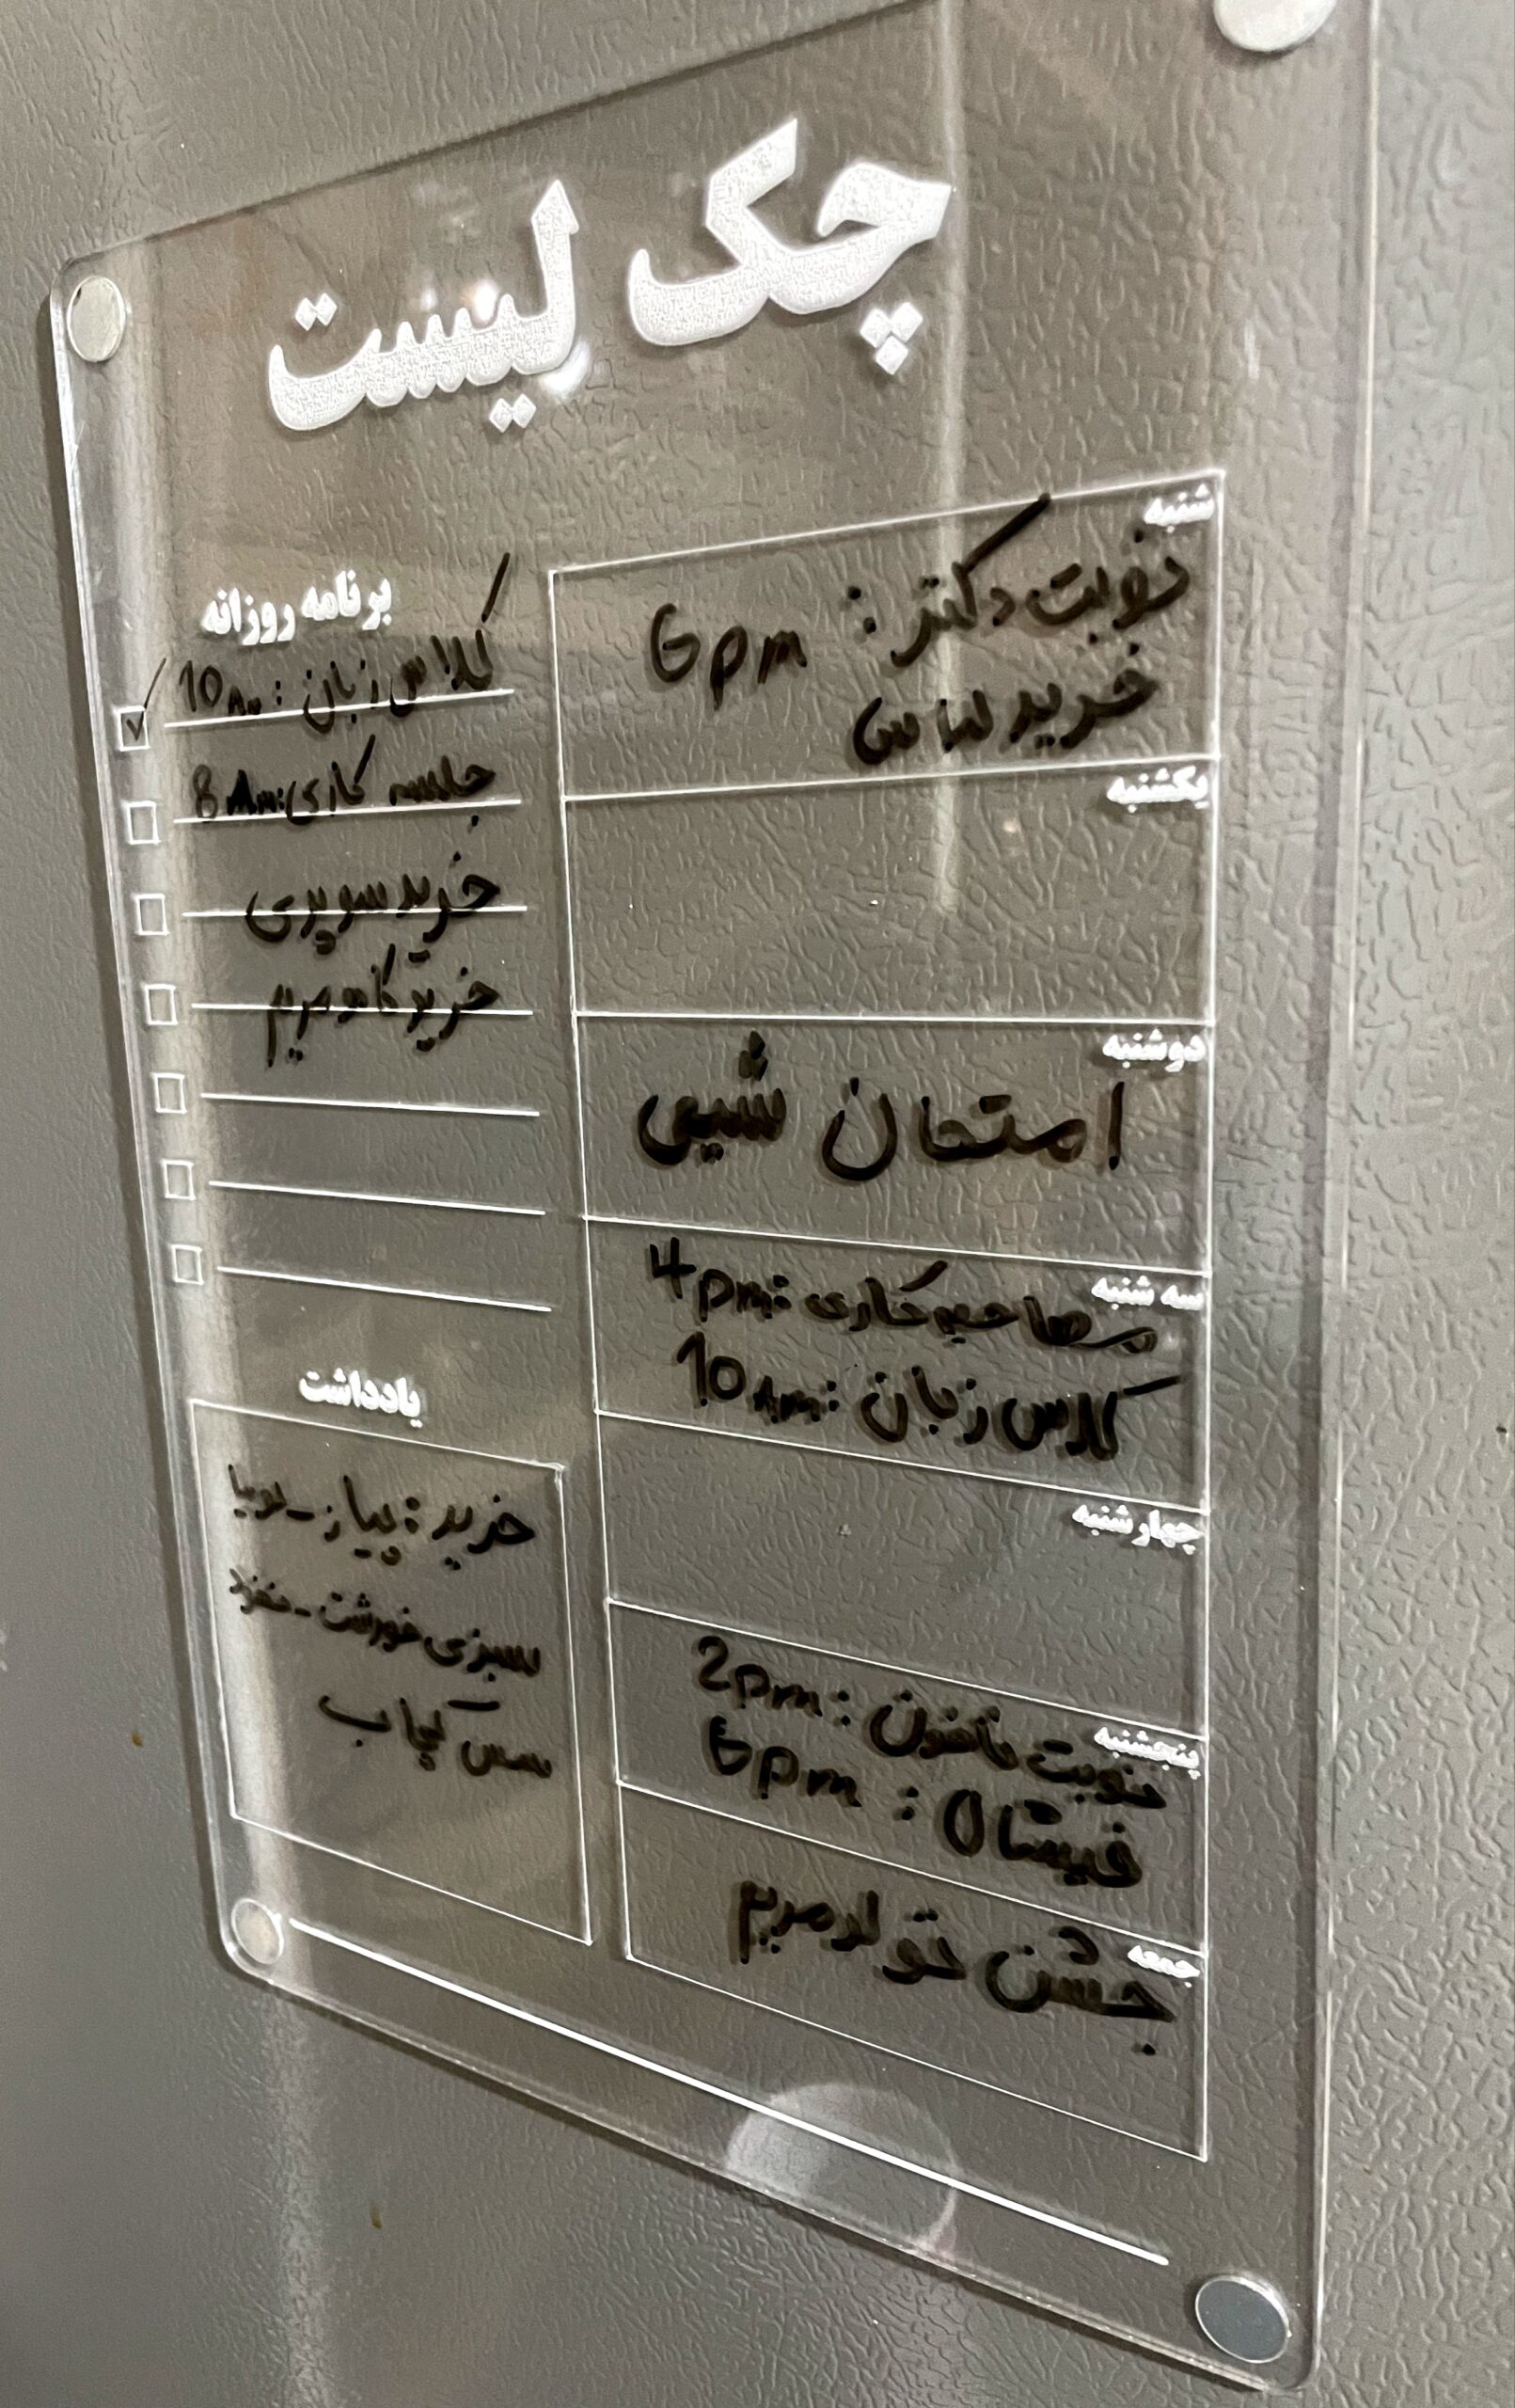 چک لیست
شنبه
نوبت دکتر : 6pm
خرید لباس
یکشنبه
دوشنبه
امتحان شیمی
سه شنبه
مصاحبه کاری : 4pm
کلاس زبان : 10Am
چهارشنبه
پنجشنبه
نوبت ناخون : 2pm
فیشال : 6pm
جمعه
جشن تولد مریم
برنامه روزانه
کلاس زبان : 10Am
جلسه کاری : 8Am
خرید سوپری
خرید کادو مریم
یادداشت
خرید : پیاز - لوبیا
سبزی خورشت -
سس کچاپ